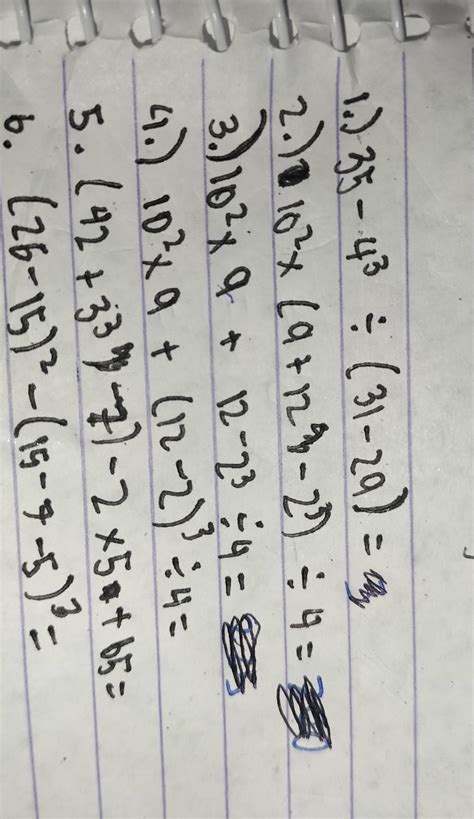 1.) 35 - 4³ ÷ (31 - 29) =
2.) 10² × (9 + 12 - 2³) ÷ 4 =
3.) 10² × 9 + 12 - 2³ ÷ 4 =
4.) 10² × 9 + (12 - 2)³ ÷ 4 =
5. (42 + 3³ - 7) - 2 × 5 + 65 =
6. (26 - 15)² - (15 - 7 - 5)³ =